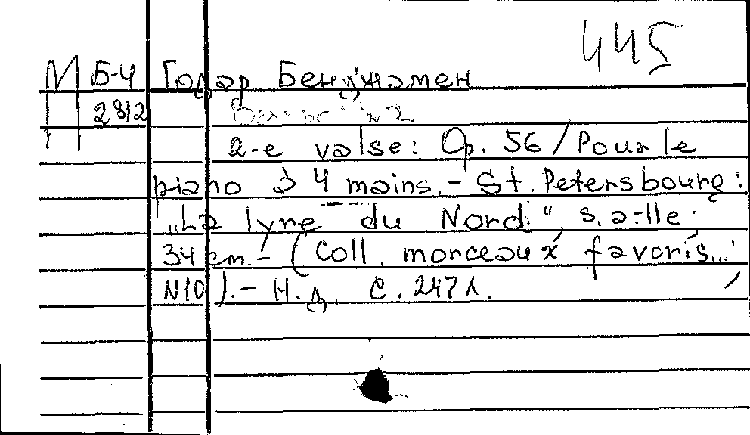 445
М Б-4 Годар Бенджамен
2812
2-e valse: Op. 56 / Pour le
piano à 4 mains. - St. Petersbourg:
"La lyre du Nord", s.a.-11 c.
34 cm. - (Coll. morceaux favoris...;
N10). - Н.д. С. 2471.